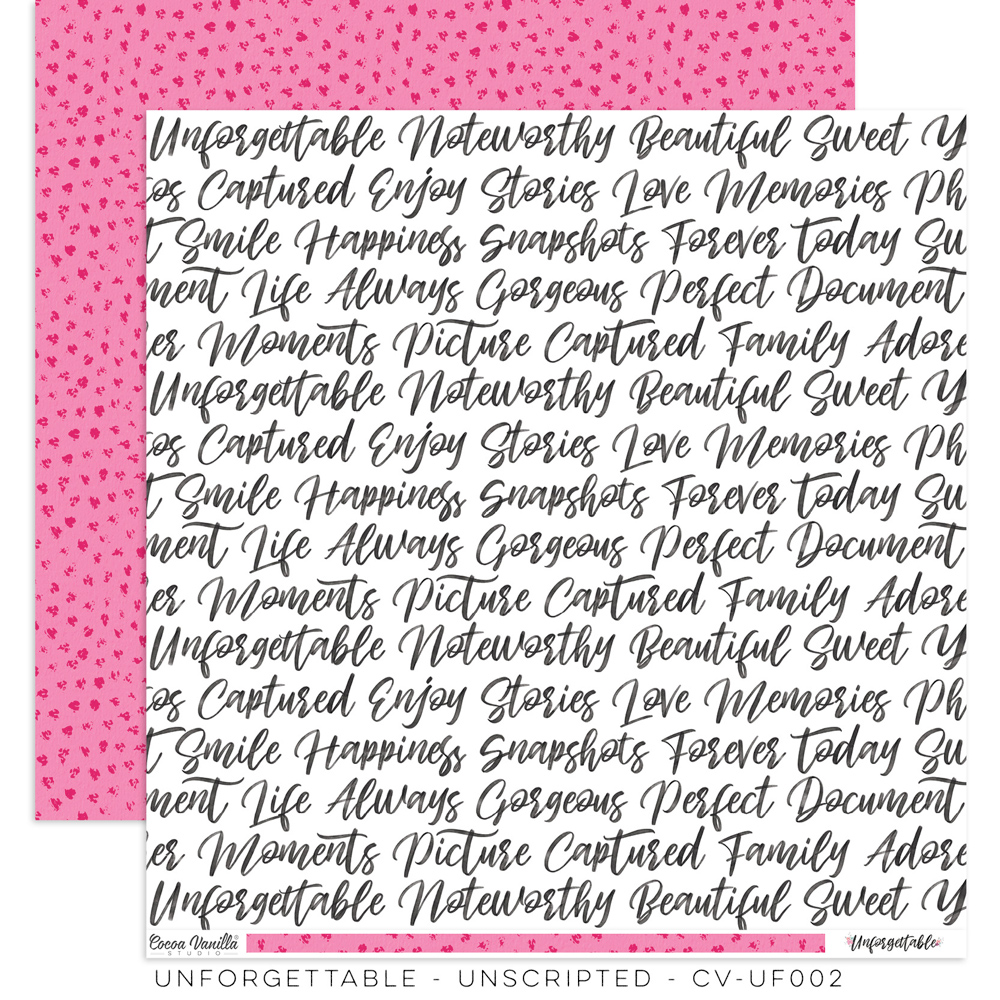 Unforgettable Noteworthy Beautiful Sweet Y
os Captured Enjoy Stories Love Memories Ph
t Smile Happiness Snapshots Forever Today Su
ment Life Always Gorgeous Perfect Document
er Moments Picture Captured Family Adore
Unforgettable Noteworthy Beautiful Sweet Y
os Captured Enjoy Stories Love Memories Ph
t Smile Happiness Snapshots Forever Today Su
ment Life Always Gorgeous Perfect Document
er Moments Picture Captured Family Adore
Unforgettable Noteworthy Beautiful Sweet Y
os Captured Enjoy Stories Love Memories Ph
t Smile Happiness Snapshots Forever Today Su
ment Life Always Gorgeous Perfect Document
er Moments Picture Captured Family Adore
Unforgettable Noteworthy Beautiful Sweet Y
Cocoa Vanilla®
STUDIO
Unforgettable
UNFORGETTABLE - UNSCRIPTED - CV-UF002